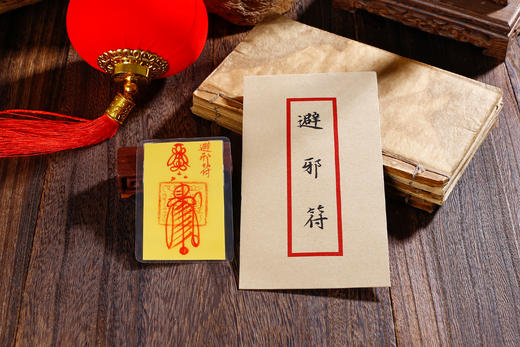 避邪符
避邪符